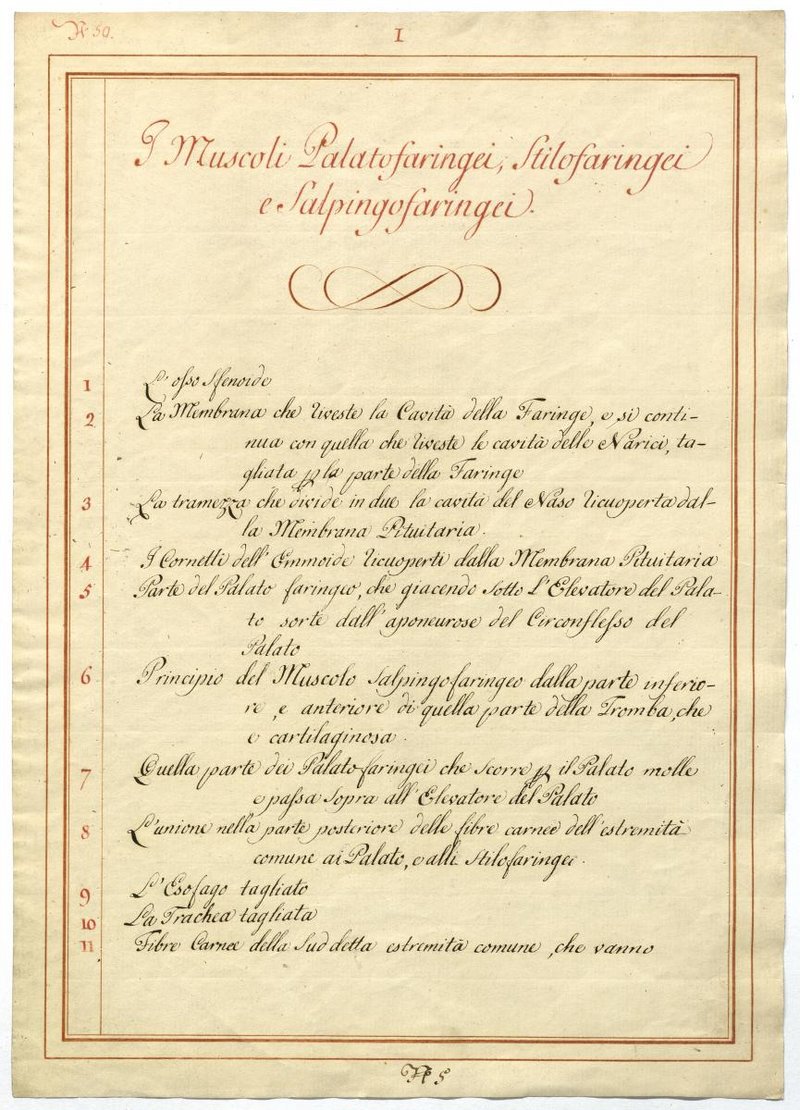 N 50.
I
I Muscoli Palatofaringei, Stilofaringei
e Salpingofaringei.
1 L'osso Sfenoide
2 La Membrana che Uveste la Cavità della Faringe, e si conti-
nua con quella che Uveste le cavità delle Narici, ta-
gliata p la parte della Faringe
3 La tramezza che divide in due la cavità del Naso Ucuoperta dal-
la Membrana Pituitaria.
4 I Cornetti dell' Emmoide Ucuoperti dalla Membrana Pituitaria
5 Parte del Palato faringeo, che giacendo sotto L'Elevatore del Pala-
to sorte dall' aponeurose del Circonflesso del
Palato
6 Principio del Muscolo Salpingofaringeo dalla parte inferio-
re, e anteriore di quella parte della Tromba, che
e cartilaginosa.
7 Quella parte dei Palatofaringei che scorre p il Palato molle
e passa sopra all' Elevatore del Palato
8 L'unione nella parte posteriore delle fibre carnee dell' estremità
comune ai Palato, e alli Stilofaringei.
9 L'Esofago tagliato
10 La Trachea tagliata
11 Fibre Carnee della Sud detta estremità comune, che vanno
N 5